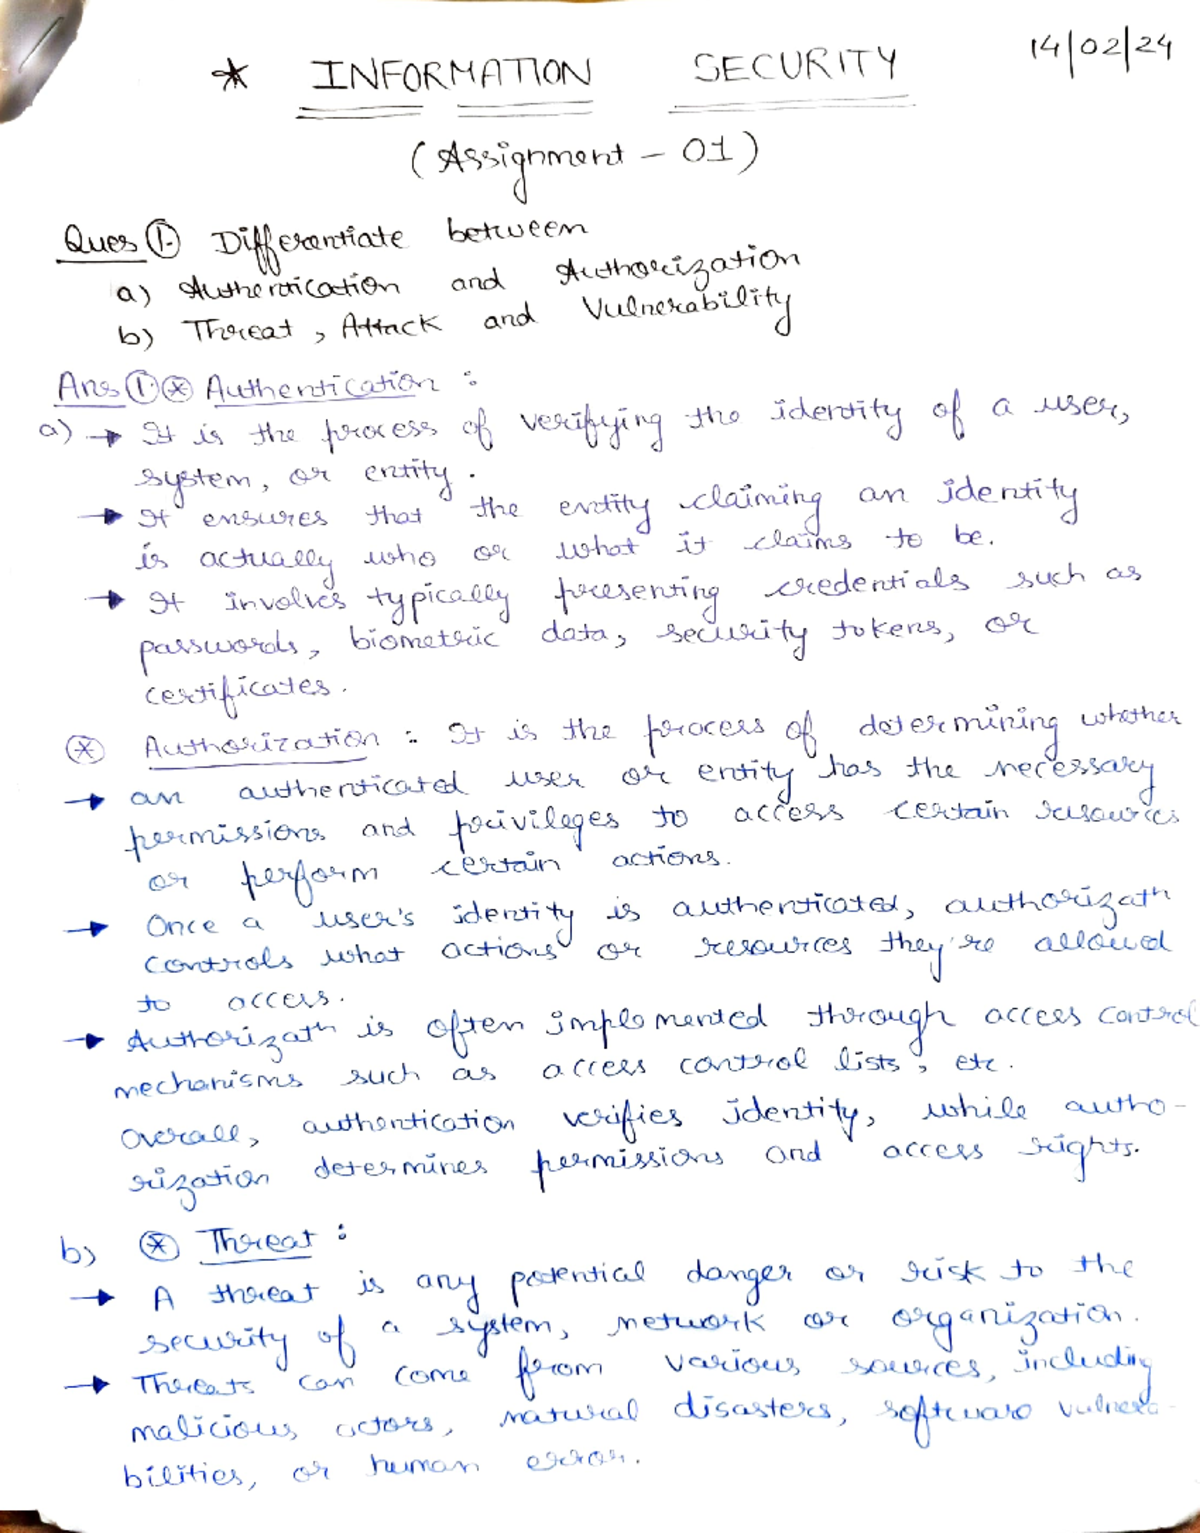 14/02/24
* INFORMATION SECURITY
(Assignment - 01)
Ques ①. Differentiate between
a) Authentication and Authorization
b) Threat, Attack and Vulnerability
Ans ①. ⊛ Authentication :
a) → It is the process of verifying the identity of a user,
system, or entity.
→ It ensures that the entity claiming an identity
is actually who or what it claims to be.
→ It involves typically presenting credentials such as
passwords, biometric data, security tokens, or
certificates.
⊛ Authorization : It is the process of determining whether
→ an authenticated user or entity has the necessary
permissions and privileges to access certain resources
or perform certain actions.
→ Once a user's identity is authenticated, authorizatn
controls what actions or resources they're allowed
to access.
→ Authorizatn is often implemented through access control
mechanisms such as access control lists, etc.
Overall, authentication verifies identity, while autho-
rization determines permissions and access rights.
b) ⊛ Threat :
→ A threat is any potential danger or risk to the
security of a system, network or organization.
→ Threats can come from various sources, including
malicious actors, natural disasters, software vulnera-
bilities, or human error.